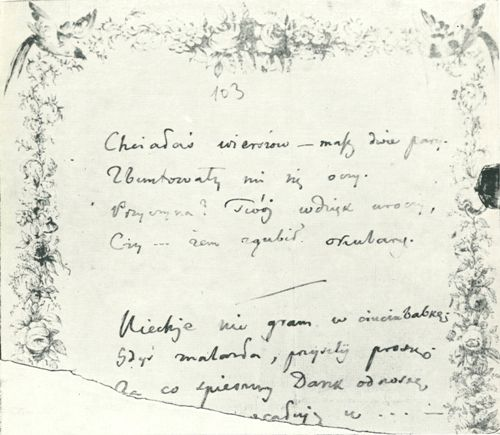 103
Chciałaś wierszów – masz dwie pary.
Zbuntowały mi się oczy.
Przyczyna? Twój wdzięk uroczy,
Czy ... żem zgubił okulary.
Niechże nie gram w ciuciubabkę,
Gdyś malarka, przyszlij proszę
Za co śpieszny Dank odnoszę,
w ... –